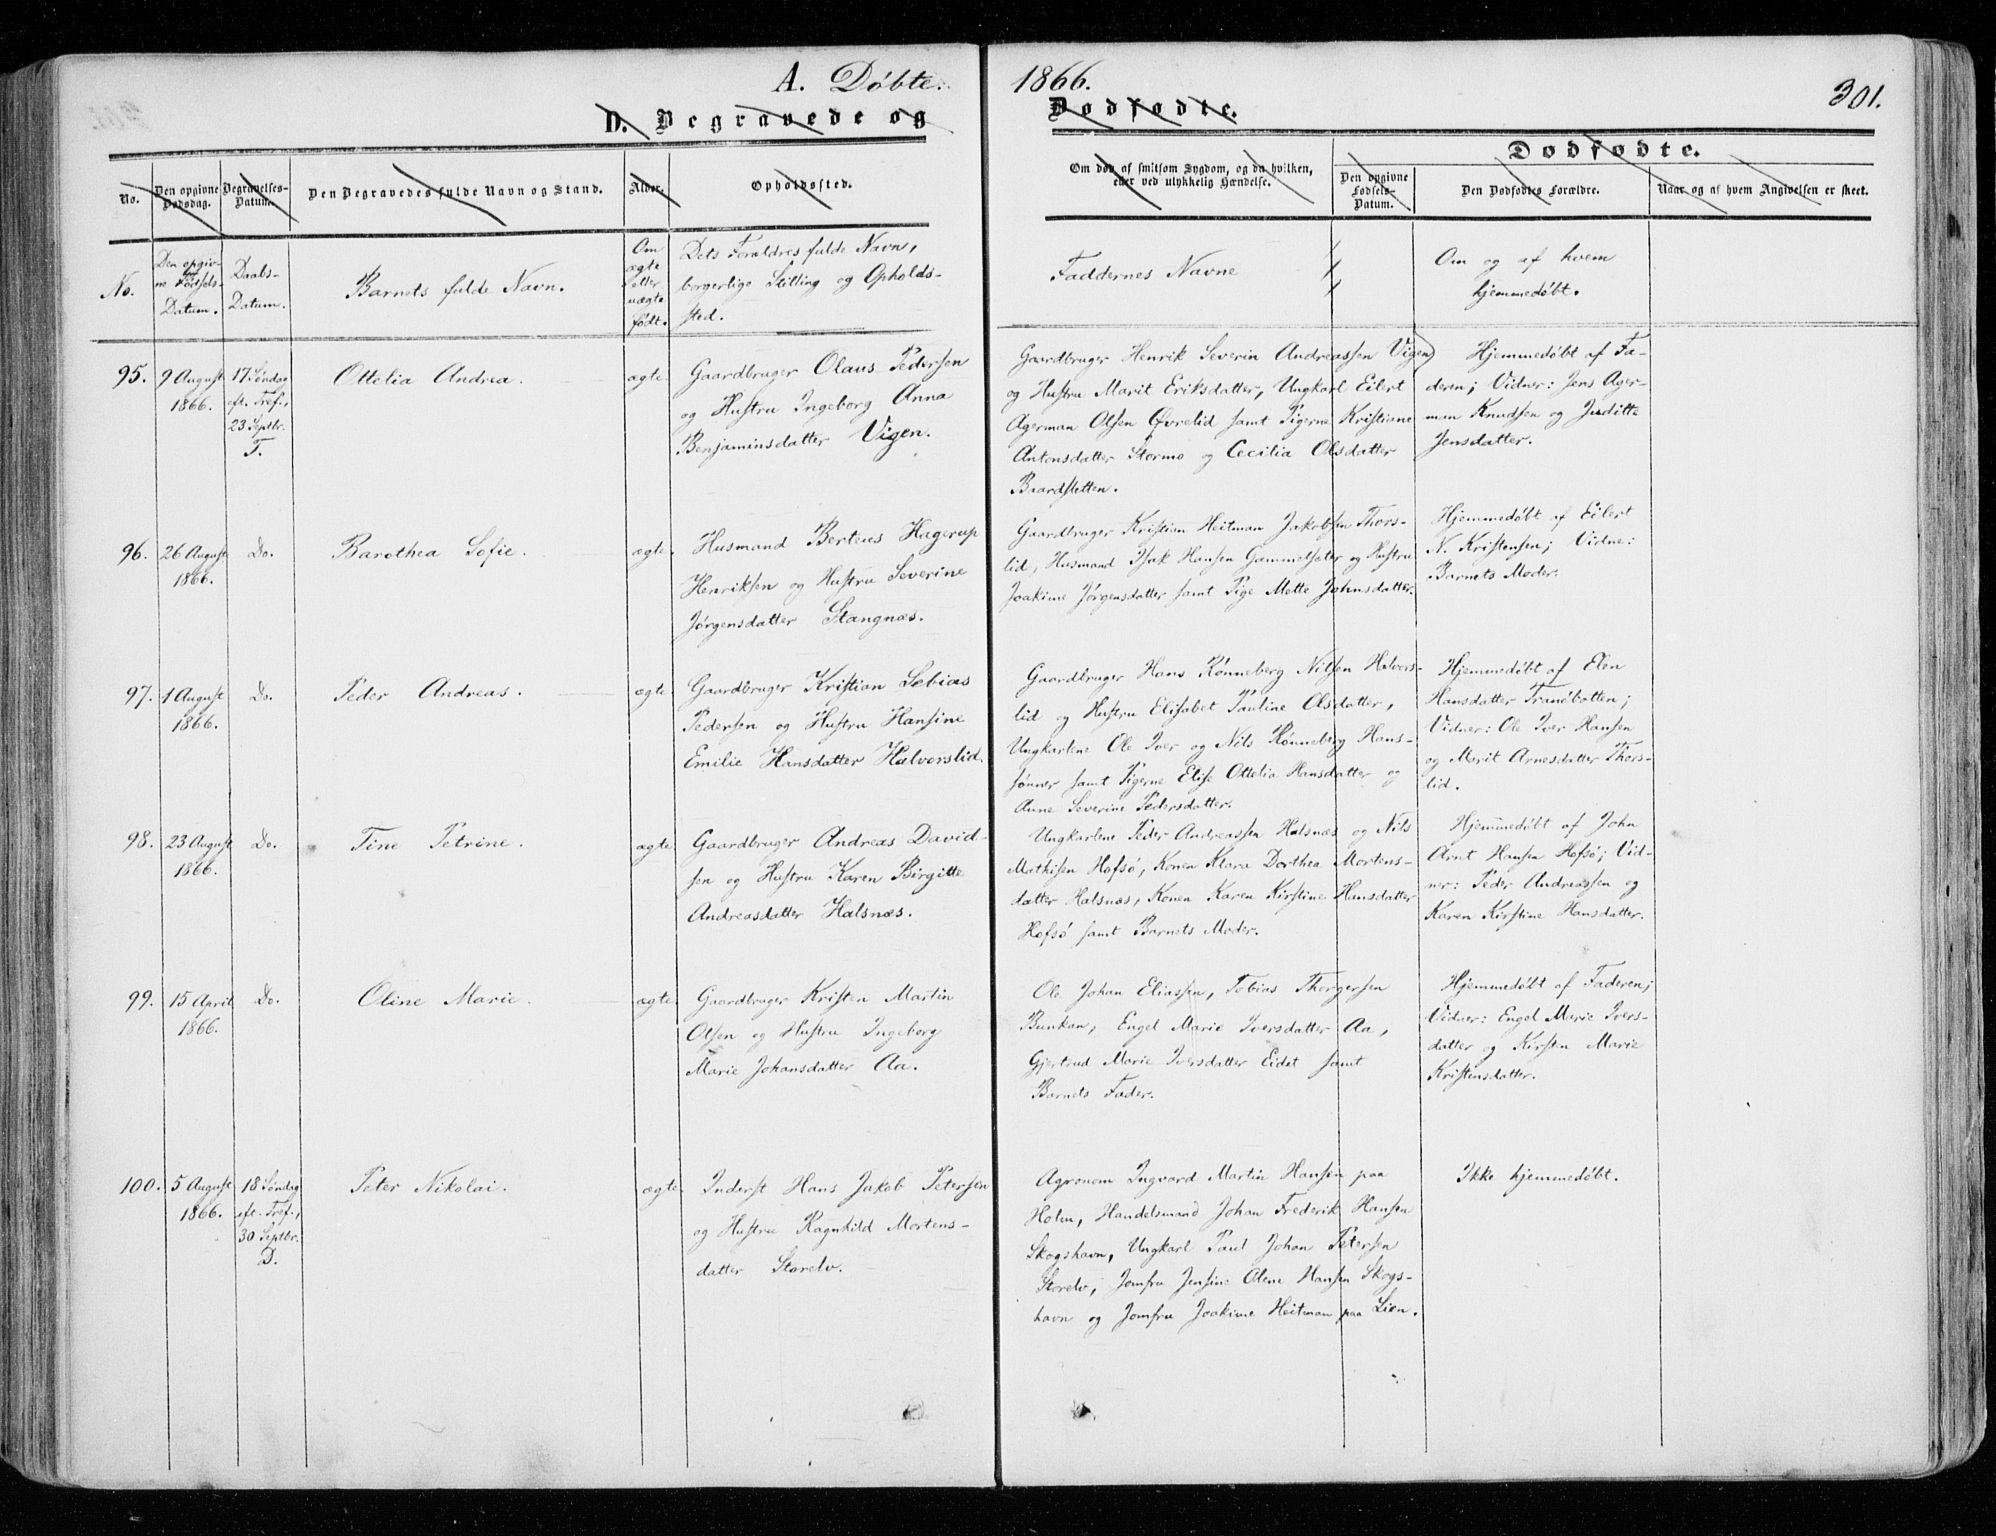 A. Døbte. 1866. 301.
D. Begravede og Dødfødte.
No.
Den opgivne Dødsdag.
Begravelses-Datum.
Den Begravedes fulde Navn og Stand.
Alder.
Opholdssted.
Om død af smitsom Sygdom, og da hvilken,
eller ved ulykkelig Hændelse.
Dødfødte.
Den opgivne Fødsels-Datum.
Den Dødfødtes Forældre.
Naar og af hvem Angivelsen er skeet.
No.
Den opgiv-
ne Fødsels-
Datum.
Daabs-
Datum.
Barnets fulde Navn.
Om
ægte
eller
uægte
født.
Dets Forældres fulde Navn,
borgerlige Stilling og Opholds-
sted.
Faddernes Navne
Om og af hvem
hjemmedøbt.
95.
9 August
1866.
17. Søndag
eft. Tref.,
23 Septbr.
T.
Ottelia Andrea.
ægte.
Gaardbruger Olaus Pedersen
og Hustru Ingeborg Anna
Benjaminsdatter Vigen.
Gaardbruger Henrik Severin Andreassen Vigen
og Hustru Marit Eriksdatter, Ungkarl Eilert
Agerman Olsen Øvrelid samt Pigerne Kristiane
Antonsdatter Stormo og Cecilia Olsdatter
Baardsletten.
Hjemmedøbt af Fa-
deren; Vidner: Jens Ager-
man Knudsen og Juditte
Jensdatter.
96.
26 August
1866.
Do.
Barothea Sofie.
ægte.
Husmand Berteus Hagerup
Henriksen og Hustru Severine
Jørgensdatter Stangnæs.
Gaardbruger Kristian Heitman Jakobsen Thors-
lid, Husmand Isak Hansen Gammelseter og Hustru
Joakime Jørgensdatter samt Pige Mette Johnsdatter.
Hjemmedøbt af Eilert
N. Kristensen; Vidne:
Barnets Moder.
97.
1 August
1866.
Do.
Peder Andreas.
ægte.
Gaardbruger Kristian Sebias
Pedersen og Hustru Hansine
Emilie Hansdatter Halvorslid.
Gaardbruger Hans Rønneberg Nilsen Halvors-
lid og Hustru Elisabet Pauline Olsdatter,
Ungkarlene Ole Iver og Nils Rønneberg Hans-
sønner samt Pigerne Elise Ottelia Hansdatter og
Anne Severine Pedersdatter.
Hjemmedøbt af Elen
Hansdatter Tranøbotten;
Vidner: Ole Iver Hansen
og Marit Arnesdatter Thors-
lid.
98.
23 August
1866.
Do.
Tine Petrine.
ægte
Gaardbruger Andreas David-
sen og Hustru Karen Birgitte
Andreasdatter Halsnæs.
Ungkarlene Peder Andreassen Halsnæs og Nils
Mathisen Hofsø, Konen Klara Dorthea Mortens-
datter Halsnæs, Konen Karen Kirstine Hansdatter
Hofsø samt Barnets Moder.
Hjemmedøbt af John
Arnt Hansen Hofsø; Vid-
ner: Peder Andreassen og
Karen Kirstine Hansdatter.
99.
15 April
1866.
Do.
Oline Marie.
ægte
Gaardbruger Kristen Martin
Olsen og Hustru Ingeborg
Marie Johansdatter Aa.
Ole Johan Eliassen, Tobias Thorgersen
Bunkan, Engel Marie Iversdatter Aa,
Gjertrud Marie Iversdatter Eidet samt
Barnets Fader.
Hjemmedøbt af Faderen;
Vidner: Engel Marie Ivers-
datter og Kirsten Marie
Kristensdatter.
100.
5 August
1866.
18 Søndag
eft. Tref.,
30 Septbr.
D.
Peter Nikolai.
ægte.
Inderst Hans Jakob Petersen
og Hustru Ragnhild Mortens-
datter Storelv.
Agronom Ingvard Martin Hansen paa
Holm, Handelsmand Johan Frederik Hansen
Skogshavn, Ungkarl Paul Johan Petersen
Storelv, Jomfru Jensine Olene Hansen Skogs-
havn og Jomfru Joakime Heitman paa Lien.
Ikke hjemmedøbt.